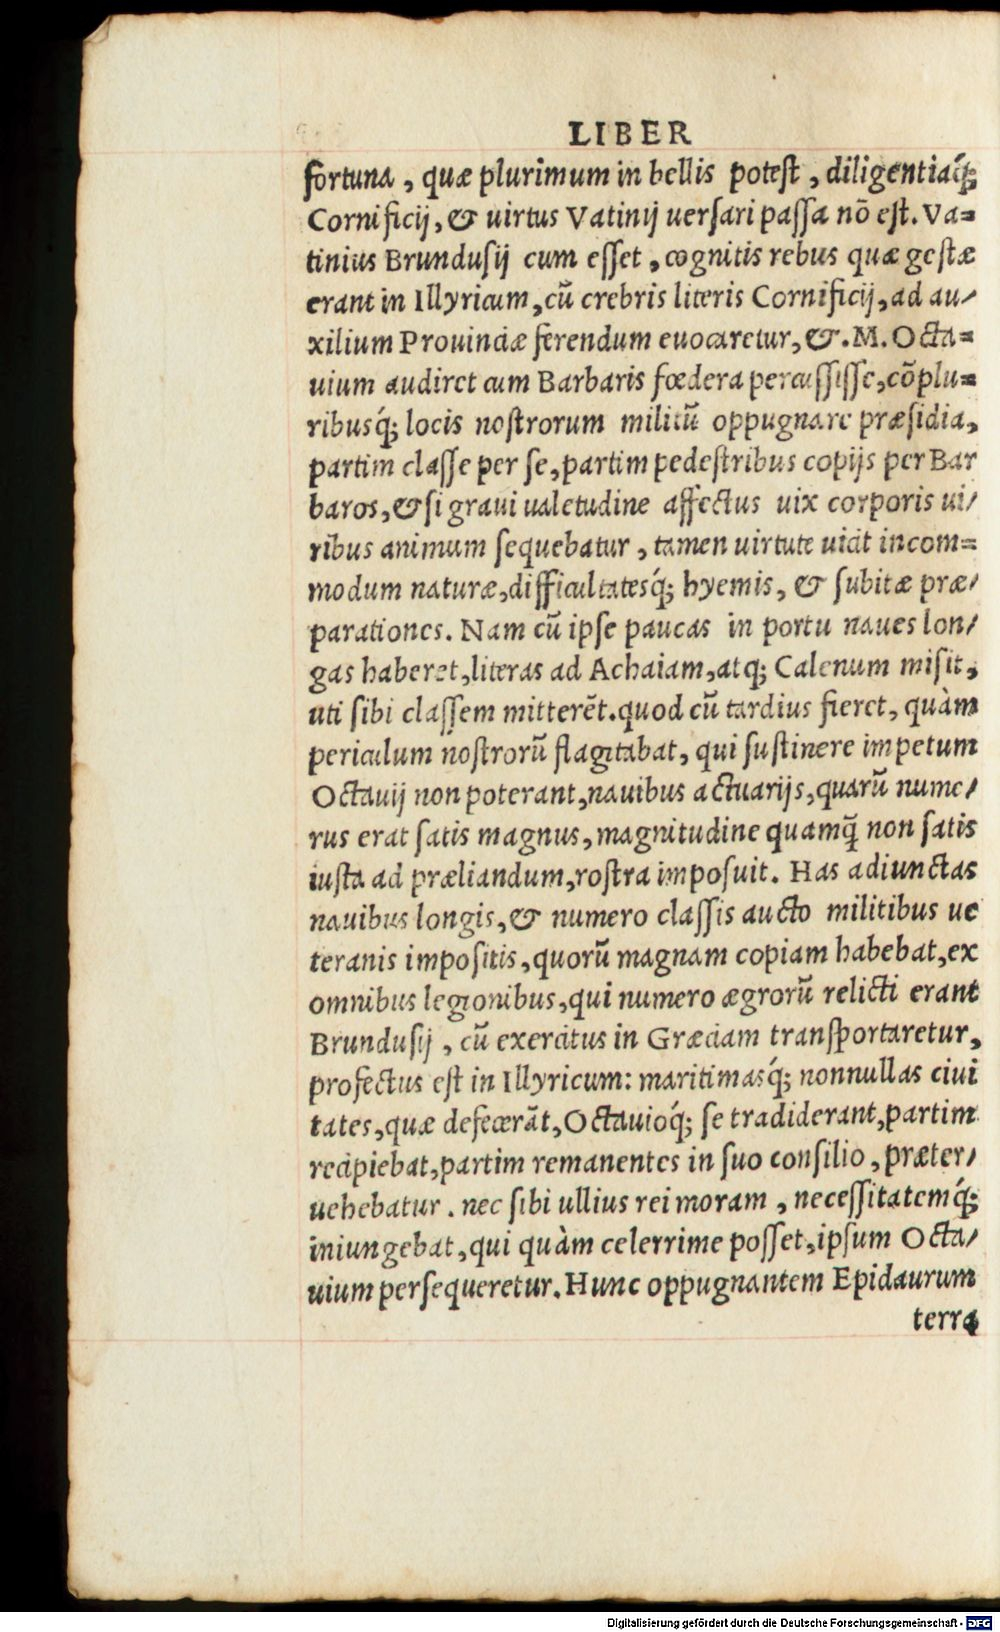 LIBER
fortuna, quæ plurimum in bellis potest, diligentiaq́;
Cornificij, & uirtus Vatinij uersari passa nō est. Va=
tinius Brundusij cum esset, cognitis rebus quæ gestæ
erant in Illyricum, cū crebris literis Cornificij, ad au/
xilium Prouinciæ ferendum euocaretur, &. M. Octa=
uium audiret cum Barbaris fœdera percussisse, cōplu=
ribusq́; locis nostrorum militū oppugnare præsidia,
partim classe per se, partim pedestribus copijs per Bar
baros, & si graui ualetudine affectus uix corporis ui/
ribus animum sequebatur, tamen uirtute uicit incom=
modum naturæ, difficultatesq́; hyemis, & subitæ præ/
parationes. Nam cū ipse paucas in portu naues lon/
gas haberet, literas ad Achaiam, atq; Calenum misit,
uti sibi classem mitterēt. quod cū tardius fieret, quàm
periculum nostrorū flagitabat, qui sustinere impetum
Octauij non poterant, nauibus actuarijs, quarū nume/
rus erat satis magnus, magnitudine quamq̄ non satis
iusta ad præliandum, rostra imposuit. Has adiunctas
nauibus longis, & numero classis aucto militibus ue
teranis impositis, quorū magnam copiam habebat, ex
omnibus legionibus, qui numero ægrorū relicti erant
Brundusij, cū exercitus in Græciam transportaretur,
profectus est in Illyricum: maritimasq́; nonnullas ciui
tates, quæ defecerāt, Octauioq́; se tradiderant, partim
recipiebat, partim remanentes in suo consilio, præter/
uehebatur. nec sibi ullius rei moram, necessitatemq́;
iniungebat, qui quàm celerrime posset, ipsum Octa/
uium persequeretur. Hunc oppugnantem Epidaurum
terra
Digitalisierung gefördert durch die Deutsche Forschungsgemeinschaft - DFG